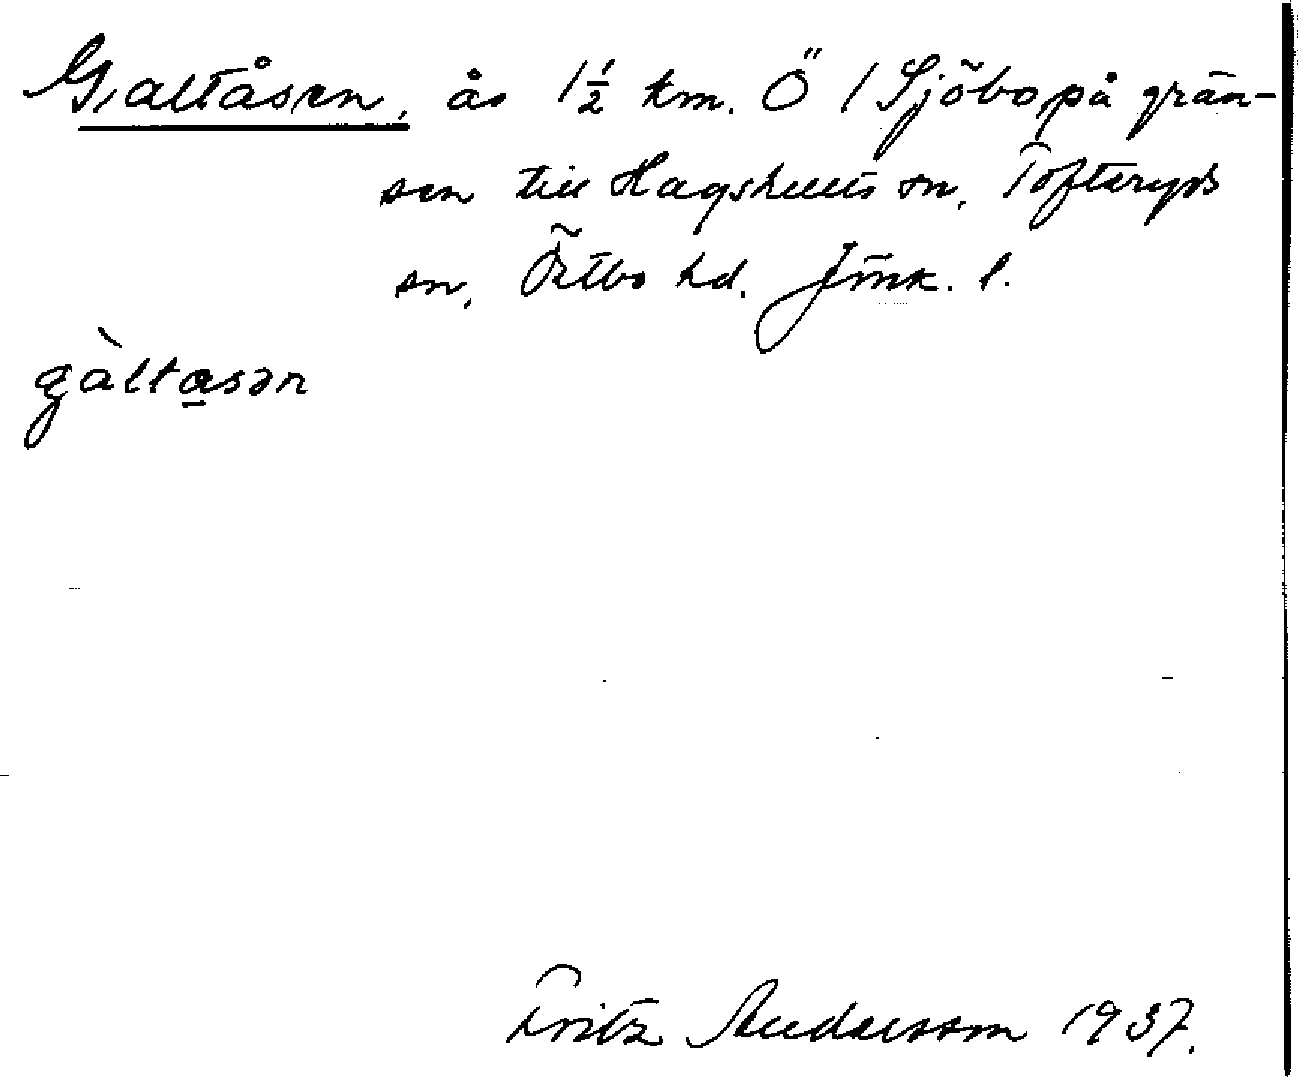 Galtåsen, ås 1½ km. Ö / Sjöbo på grän-
sen till Hagshults sn, Tofteryds
sn, Östbo hd. Jönk. l.
gàltasən
Fritz Andersson 1937.